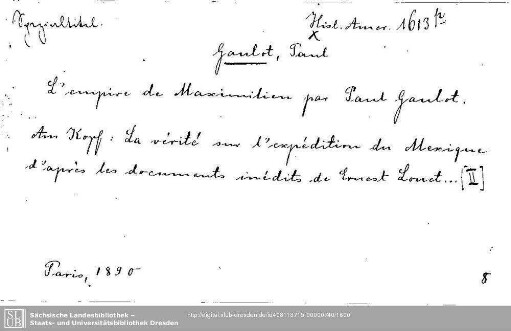 Spezialtitel.
Hist. Amer. 1613 p
Gaulot, Paul
L'empire de Maximilien par Paul Gaulot.
Am Kopf: La vérité sur l'expédition du Mexique
d'après les documents inédits de Ernest Louet... [II]
Paris, 1890
8
SLUB
Sächsische Landesbibliothek –
Staats- und Universitätsbibliothek Dresden